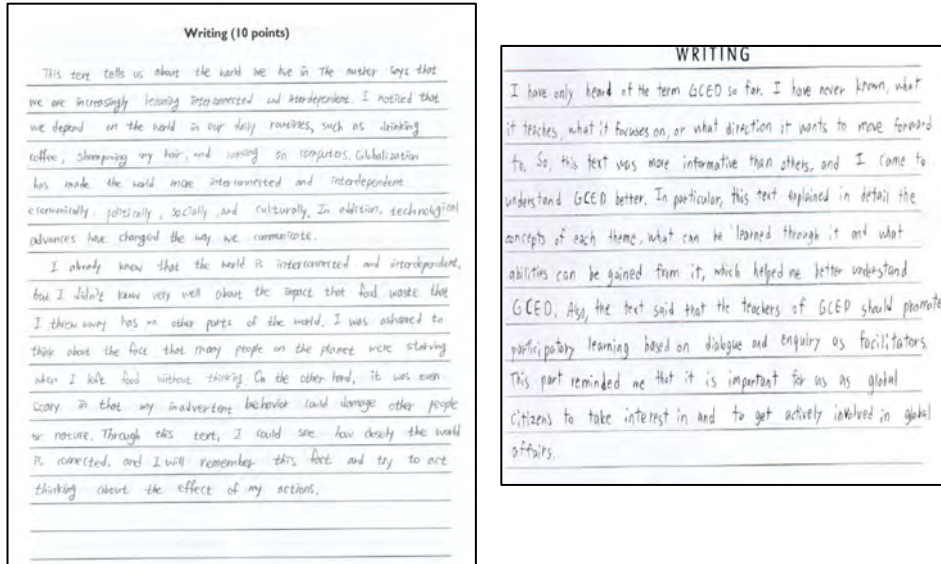 Writing (10 points)
This text tells us about the world we live in. The author says that
we are increasingly becoming interconnected and interdependent. I noticed that
we depend on the world in our daily routines, such as drinking
coffee, shampooing my hair, and working on computers. Globalization
has made the world more interconnected and interdependent
economically, politically, socially, and culturally. In addition, technological
advances have changed the way we communicate.
I already knew that the world is interconnected and interdependent,
but I didn't know very well about the impact that food waste that
I threw away has on other parts of the world. I was ashamed to
think about the fact that many people on the planet were starving
when I left food without thinking. On the other hand, it was even
scary in that my inadvertent behavior could damage other people
or nature. Through this text, I could see how closely the world
is connected, and I will remember this fact and try to act
thinking about the effect of my actions.
WRITING
I have only heard of the term GCED so far. I have never known, what
it teaches, what it focuses on, or what direction it wants to move forward
to. So, this text was more informative than others, and I came to
understand GCED better. In particular, this text explained in detail the
concepts of each theme, what can be learned through it and what
abilities can be gained from it, which helped me better understand
GCED. Also, the text said that the teachers of GCED should promote
participatory learning based on dialogue and enquiry as facilitators.
This part reminded me that it is important for us as global
citizens to take interest in and to get actively involved in global
affairs.